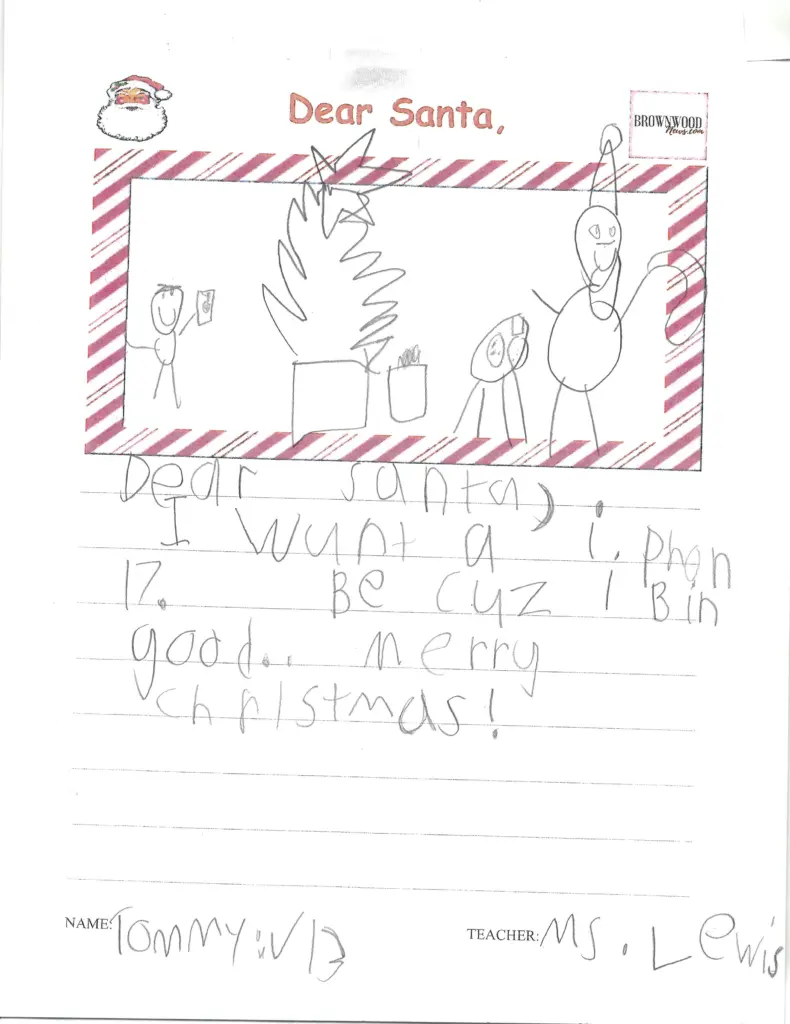 Dear Santa,
BROWNWOOD
News.com
Dear Santa,
I want a i. phon
17. Be cuz I Bin
good.. merry
christmas!
NAME: Tommy
TEACHER: Ms. Lewis